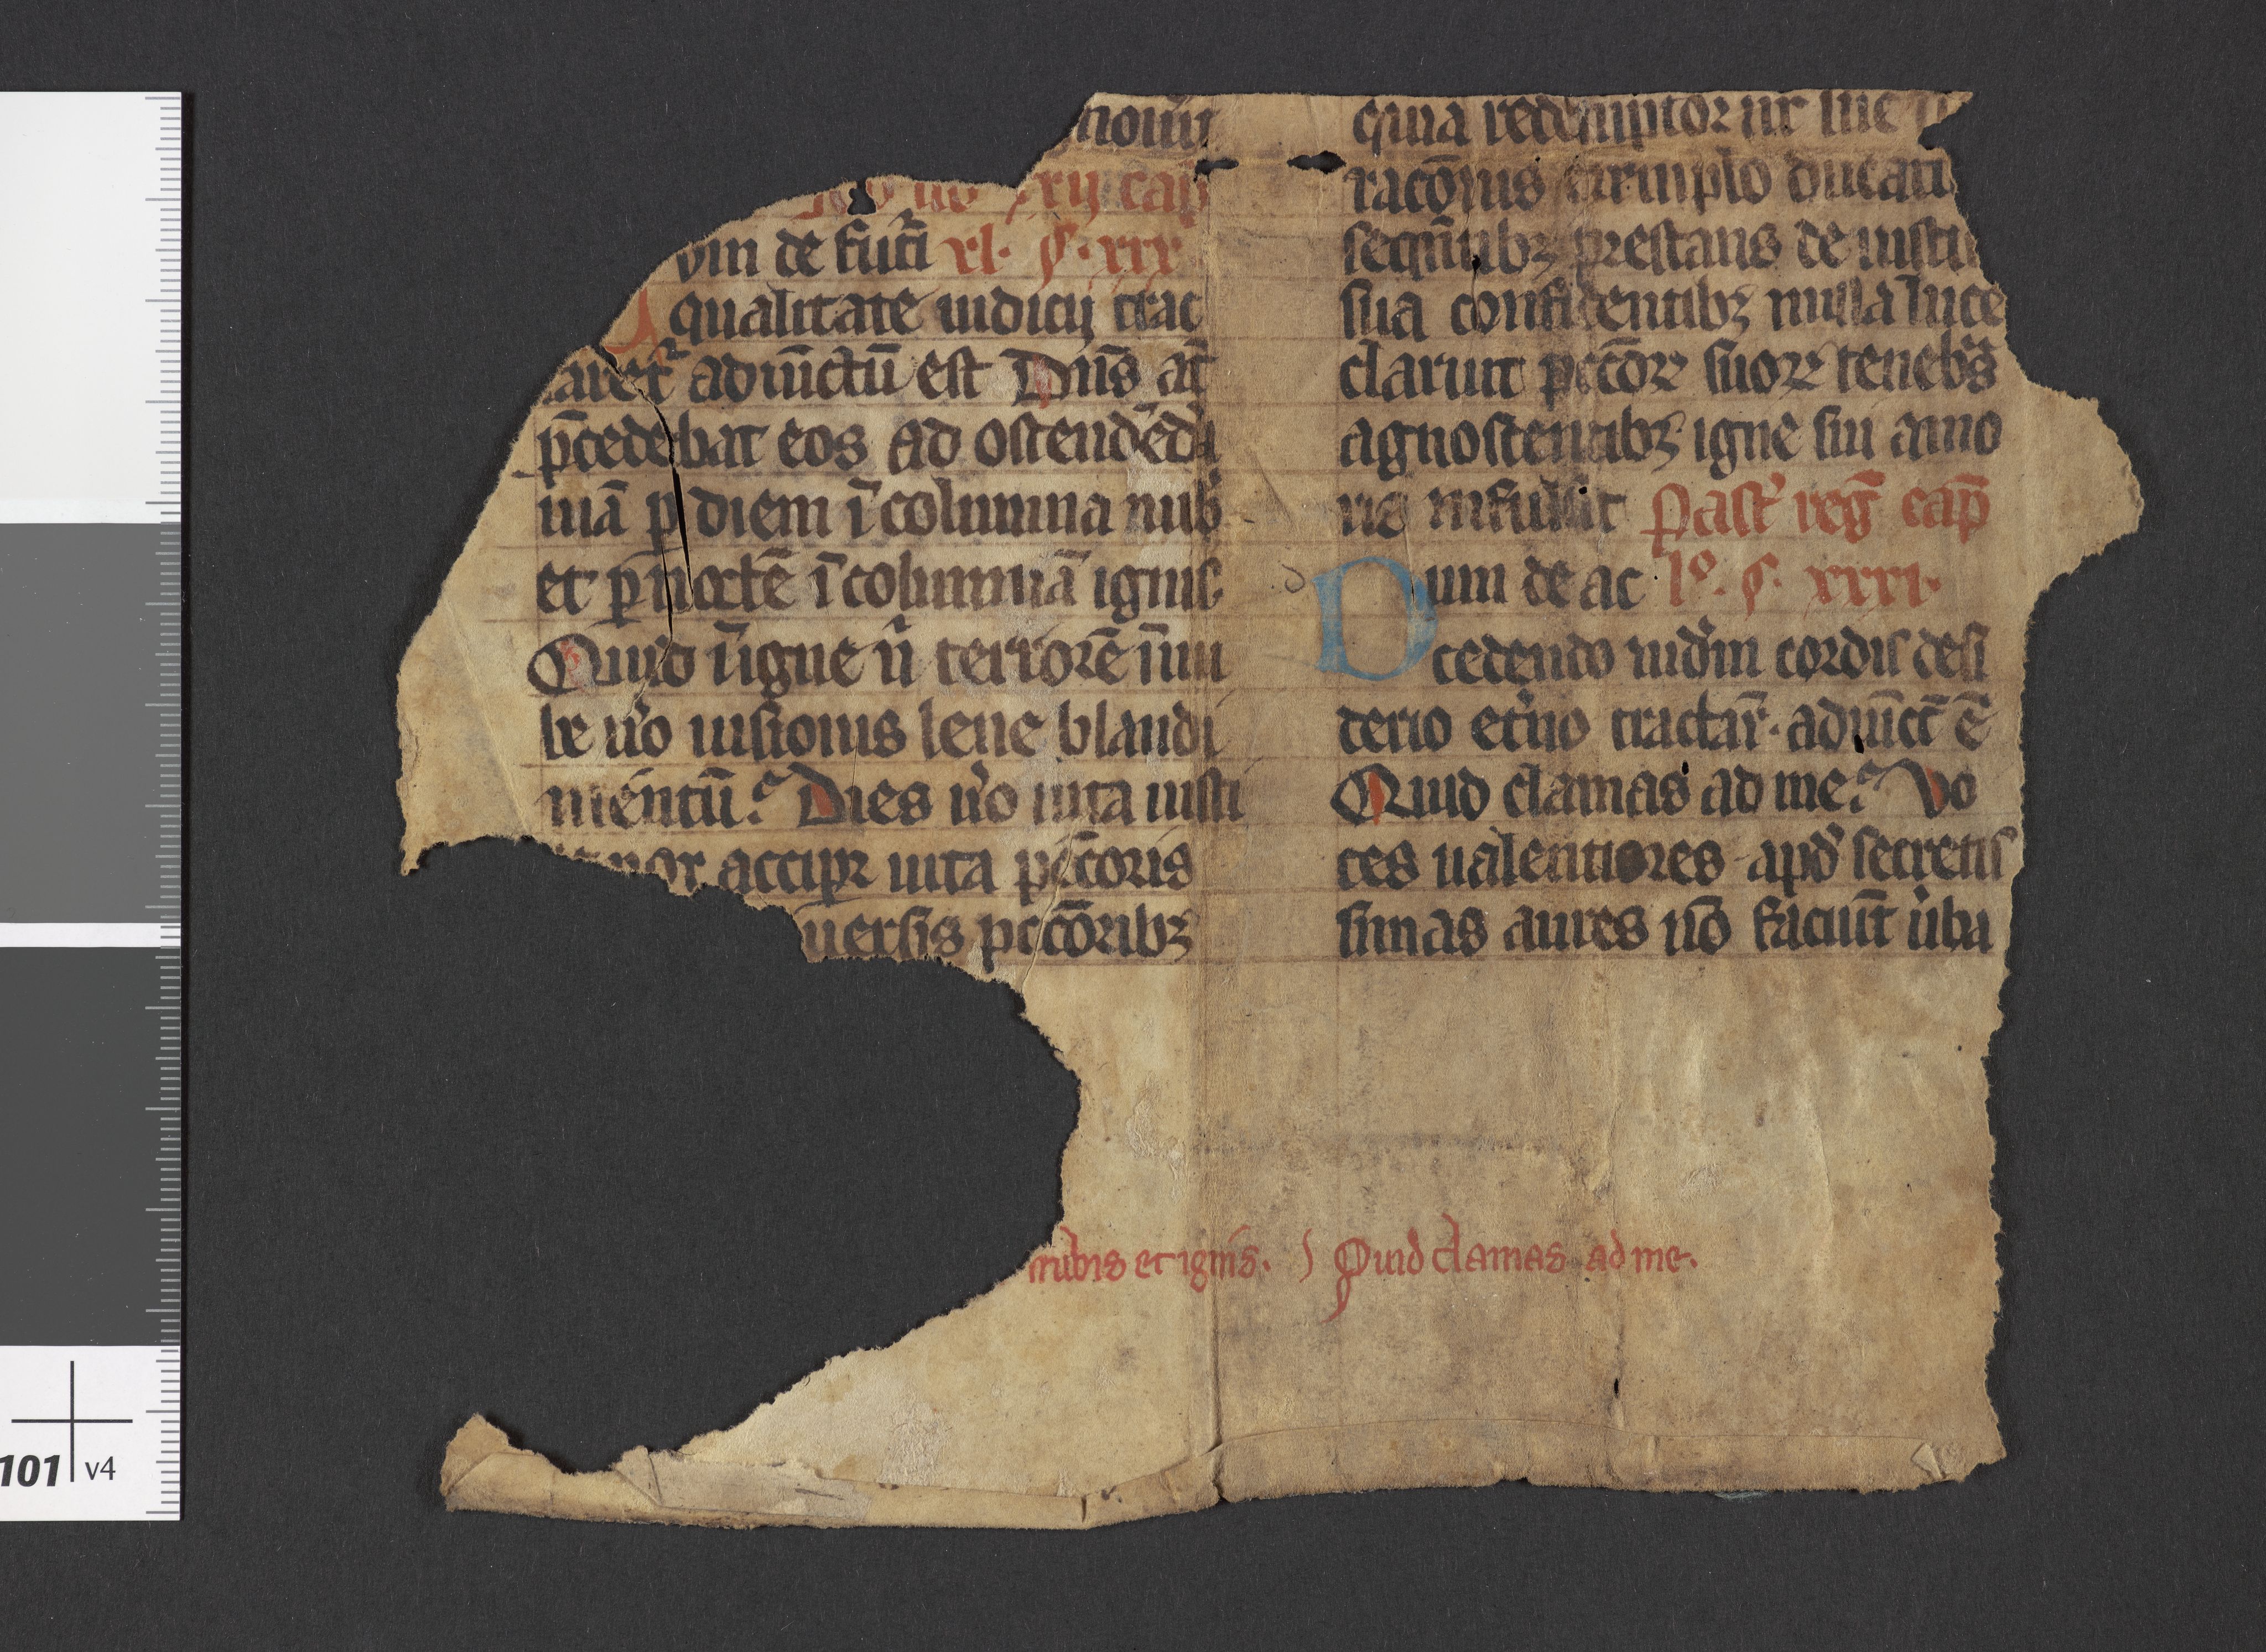 nouit
xxij cap
vm de futi xl. ꝯ. xxx
qualitate iudicij trac
taret᷑ adiūctū est Dn̄s aū
p̄cedebat eos ad ostendēdā
uiā p diem ī columna nub̾
et p noctē ī columnā ignis
Quid ī igne n̄ terrorē n̄ni
le u̾o uisionis lene blandi
mentū. Dies u̾o uita iusti
nox accipr uita pctoris
uersis pctōribꝫ
quia redemptor ut
racōnis exemplo ducatū
sequētibꝫ prestans de iusti
sua confidentibꝫ nulla luce
claruit pctōꝝ suoꝝ tenebr̾as
agnoscentibꝫ igne sui amo
ris infulsit Past̾ reg̅ cap̅
Dum de ac lo. ꝯ. xxxi.
cedendo iudm cordis desi
derio et̾no tractar̄. adiūct̄ ē
Quid clamas ad me. Vo
ces ualentiores apd̾ secretis
simas aures nō faciūt u̾ba
nubis et ignis. Quid clamas ad me.